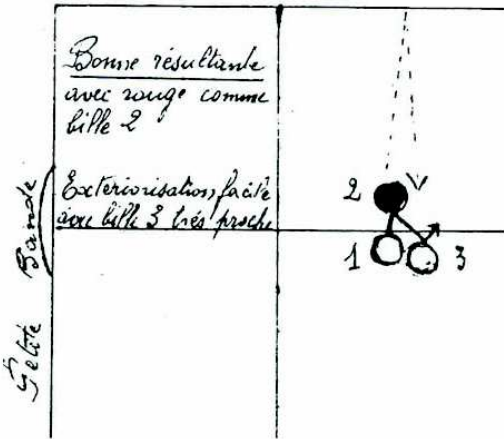 Bonne résultante
avec rouge comme
bille 2
Extériorisation, facile
avec bille 3 très proche
2
1
3
Petite Bande